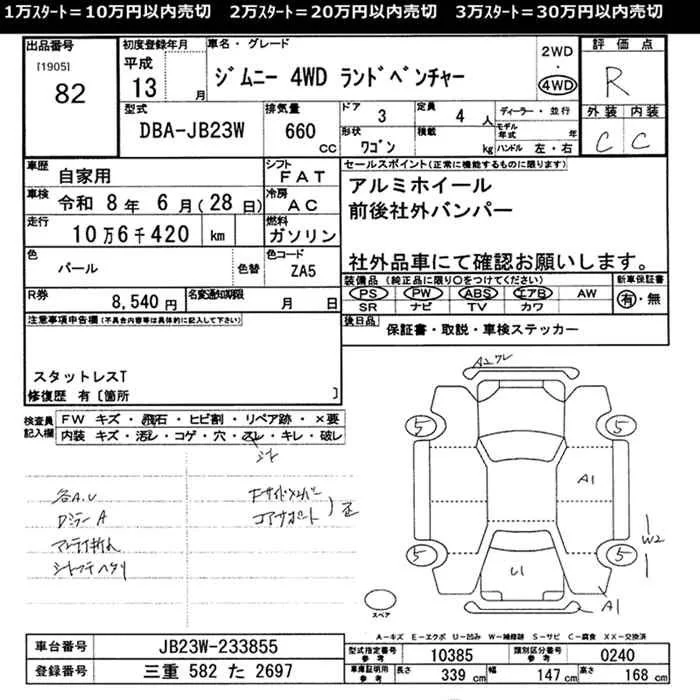 1万スタート＝10万円以内売切　2万スタート＝20万円以内売切　3万スタート＝30万円以内売切
出品番号
[1905]
82
初度登録年月
平成
13 月
車名・グレード
ジムニー 4WD ランドベンチャー
2WD
・
4WD
評価点
R
外装 内装
C C
型式
DBA-JB23W
排気量
660 cc
ドア 3
定員 4 人
形状 ワゴン
積載 kg
ディーラー・並行
モデル年式 年
ハンドル 左・右
車歴 自家用
シフト FAT
車検 令和 8 年 6 月(28 日)
冷房 AC
走行 10万6千420 km
燃料 ガソリン
色 パール 色替
色コード ZA5
R券 8,540 円
名変通知期限 月 日
セールスポイント(正常に機能するものに限ります)
アルミホイール
前後社外バンパー
社外品車にて確認お願いします。
装備品(純正品に限り〇をつけてください)
PS PW ABS エアB AW
SR ナビ TV カワ
新車保証書
有・無
後日品 保証書・取説・車検ステッカー
注意事項申告欄(不具合内容等は具体的に記入して下さい)
スタットレスT
修復歴 有〔箇所 〕
検査員記入欄
FW キズ・飛石・ヒビ割・リペア跡・×要
内装 キズ・汚レ・コゲ・穴・スレ・キレ・破レ
各A.U
Dミラー A
A1
U1
W2
A1
5
5
5
5
スペア
A－キズ E－エクボ U－凹み W－補修跡 S－サビ C－腐食 XX－交換済
車台番号 JB23W-233855
登録番号 三重 582 た 2697
型式指定番号 参考 10385
類別区分番号 参考 0240
車庫証明用 参考 長さ 339 cm 幅 147 cm 高さ 168 cm